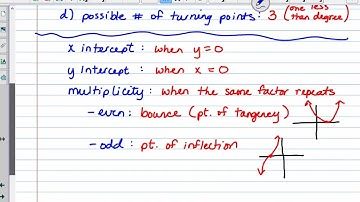 d) possible # of turning points: 3 (one less than degree)
x intercept: when y=0
y intercept: when x = 0
multiplicity: when the same factor repeats
- even: bounce (pt. of tangency)
- odd: pt. of inflection